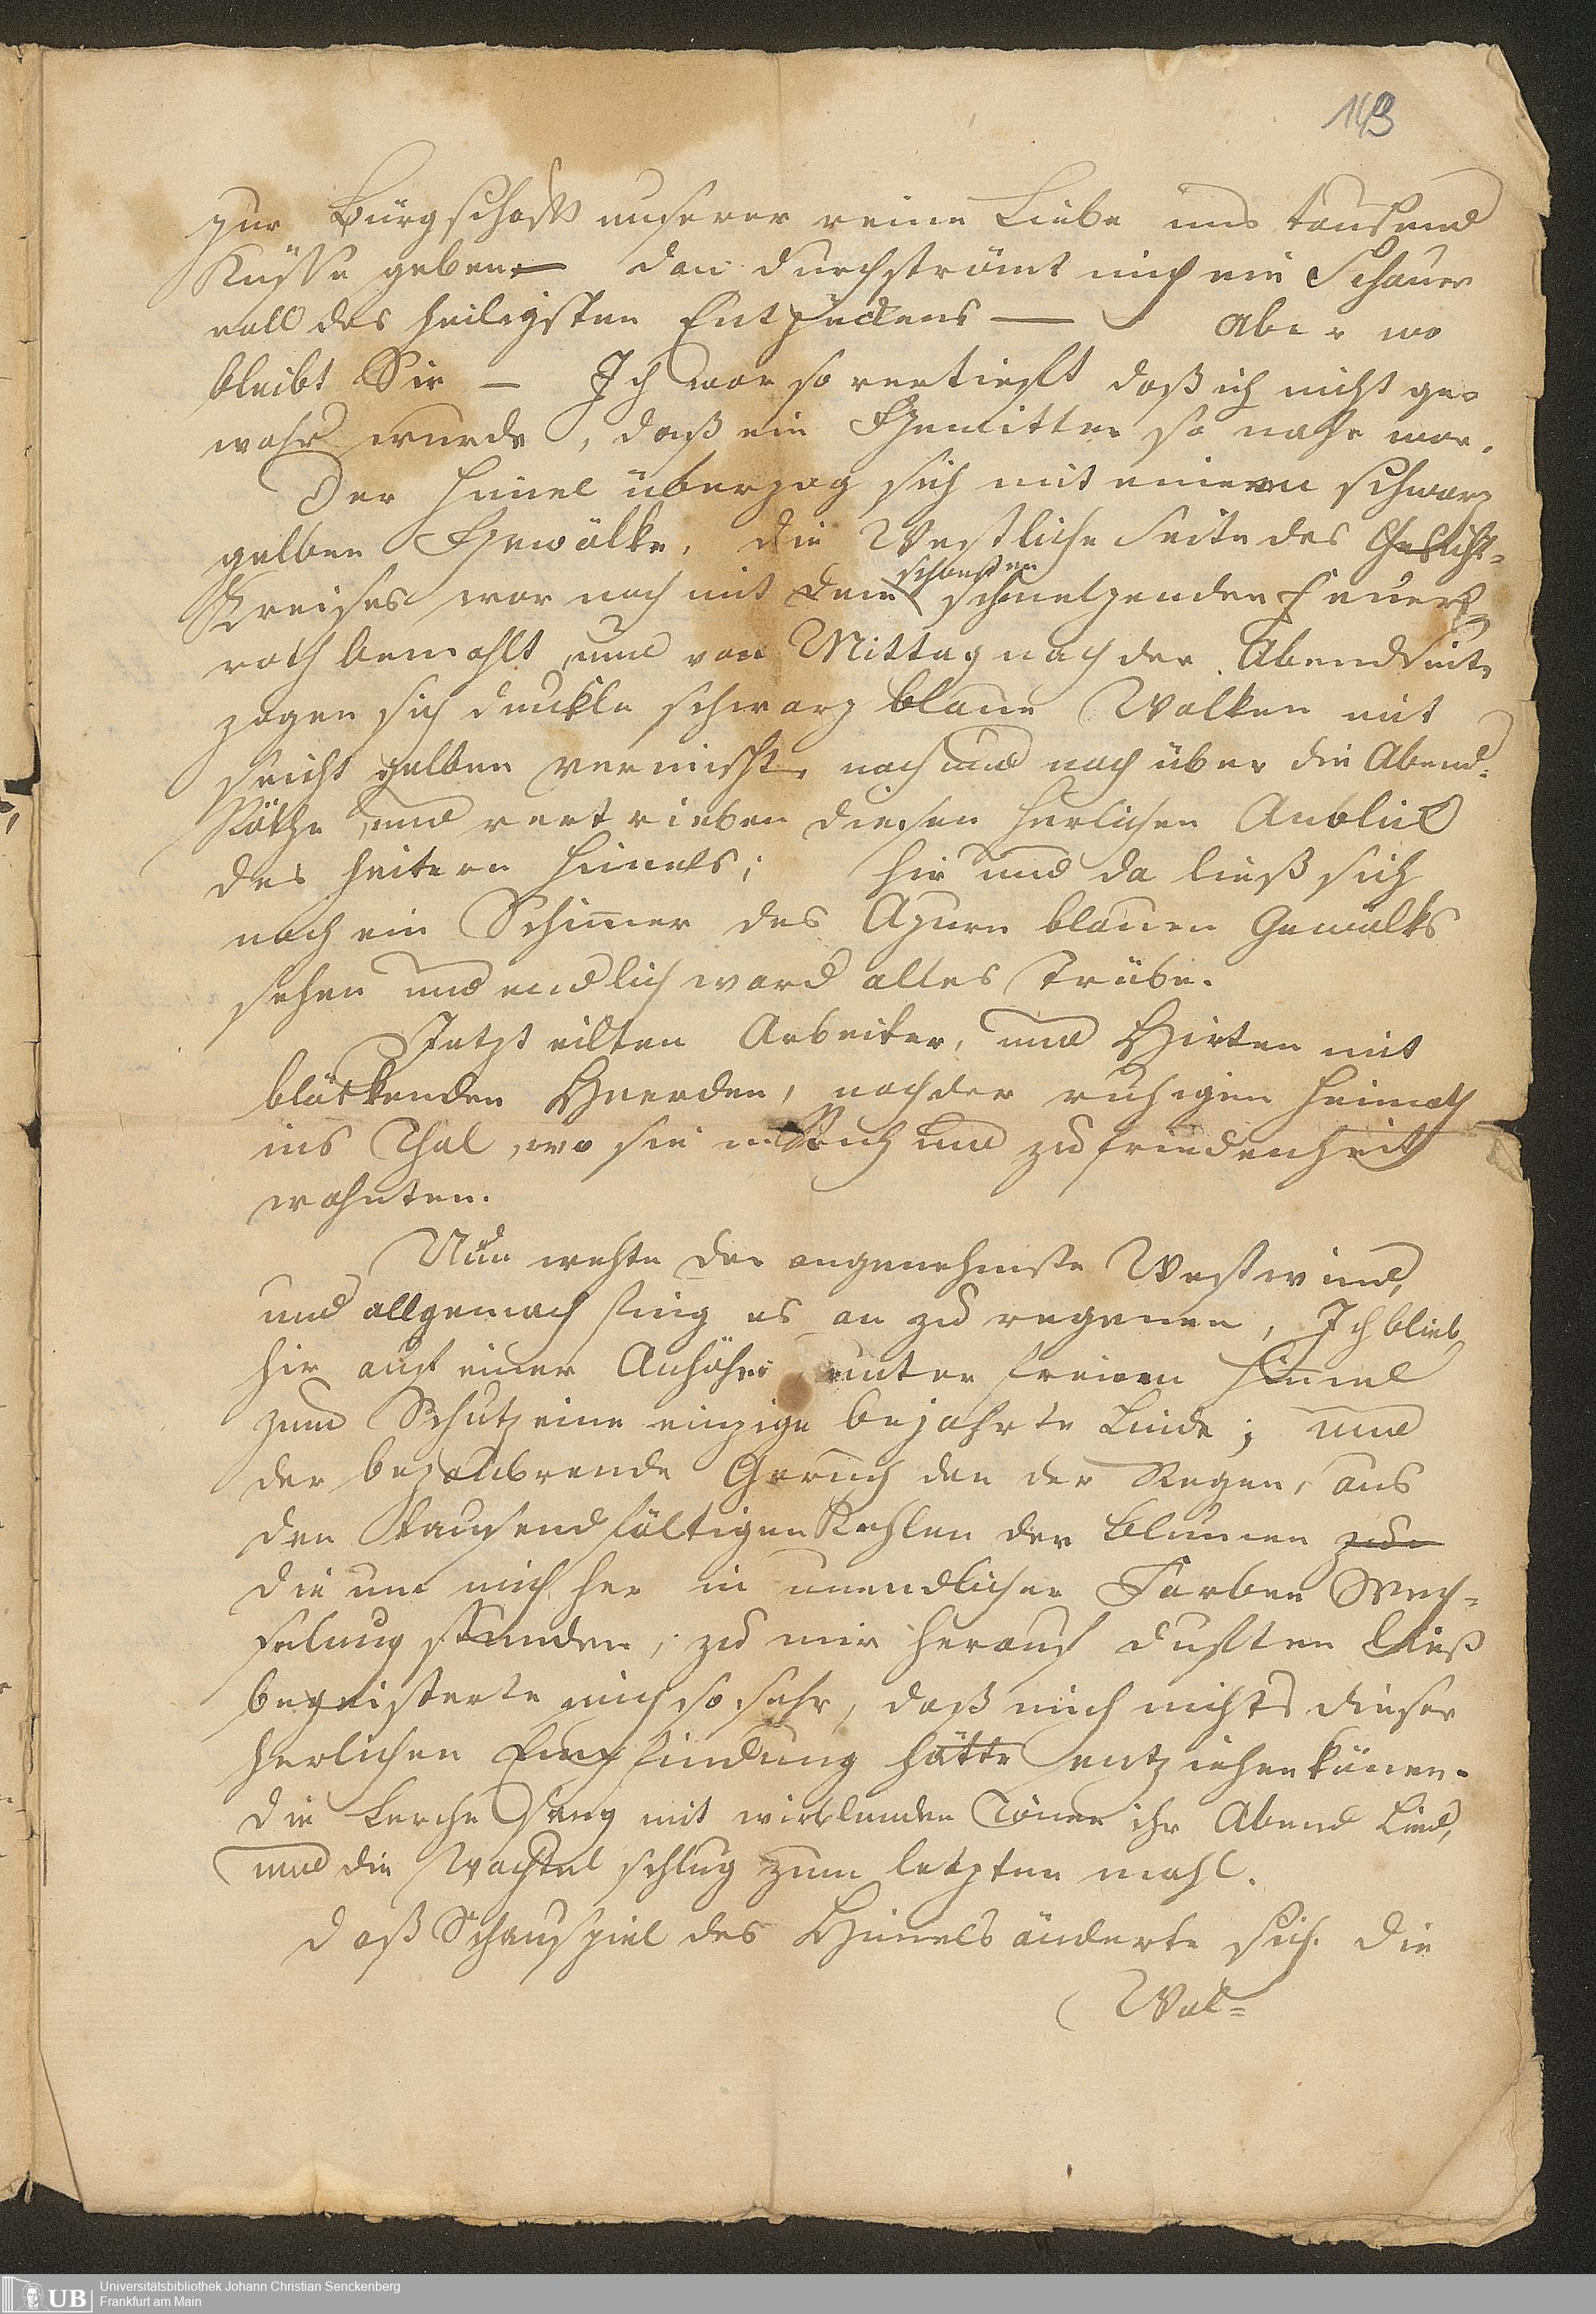 143
zur Bürgschaft unserer reine Liebe uns tausend
Küsse geben — dan durchströmt mich ein Schauer
voll des heiligsten Entzückens — Aber wo
bleibt Sie — Ich war so vertieft daß ich nicht ge-
wahr wurde, daß ein Gewitter so nahe war.
Der Himel überzog sich mit einem schwarz
gelben Gewölke, die Westliche Seite des Gesicht-
schönsten
Kreises war noch mit dem schmelzenden Feuer
roth bemahlt und von Mittag nach der Abendseite
zogen sich dunkle schwarz blaue Wolken mit
licht gelben vermischt, nach und nach über die Abend-
Röthe und vertrieben diesen herlichen Anblick
des heitern Himels; hir und da ließ sich
noch ein Schimer des Azurn blauen Gewölks
sehen und endlich ward alles Trübe.
Jetzt eilten Arbeiter, und Hirten mit
blöckenden Heerden, nach der ruhigen Heimath
ins Thal, wo sie in Ruh und zufriedenheit
wohnten.
Nun wehte der angenehmste Westwind,
und allgemach fing es an zu regenen, Ich blieb
hir auf einer Anhöhe unter freiem Himmel
zum Schutz eine einzige bejahrte Linde; und
der bezaubrende Geruch den der Regen, aus
den tausendfältigen Kehlen der Blumen
die um mich her in unendlicher Farben Wech-
selung stunden, zu mir herauf duften ließ
begeisterte mich so sehr, daß mich nichts dieser
herlichen Empfindung hätte entziehen könen.
die Lerche sang mit wirblenden Tönen ihr Abend Lied,
und die Wachtel schlug zum letzten mahl.
Daß Schauspiel des Himels änderte sich. die
Wol-
UB
Universitätsbibliothek Johann Christian Senckenberg
Frankfurt am Main